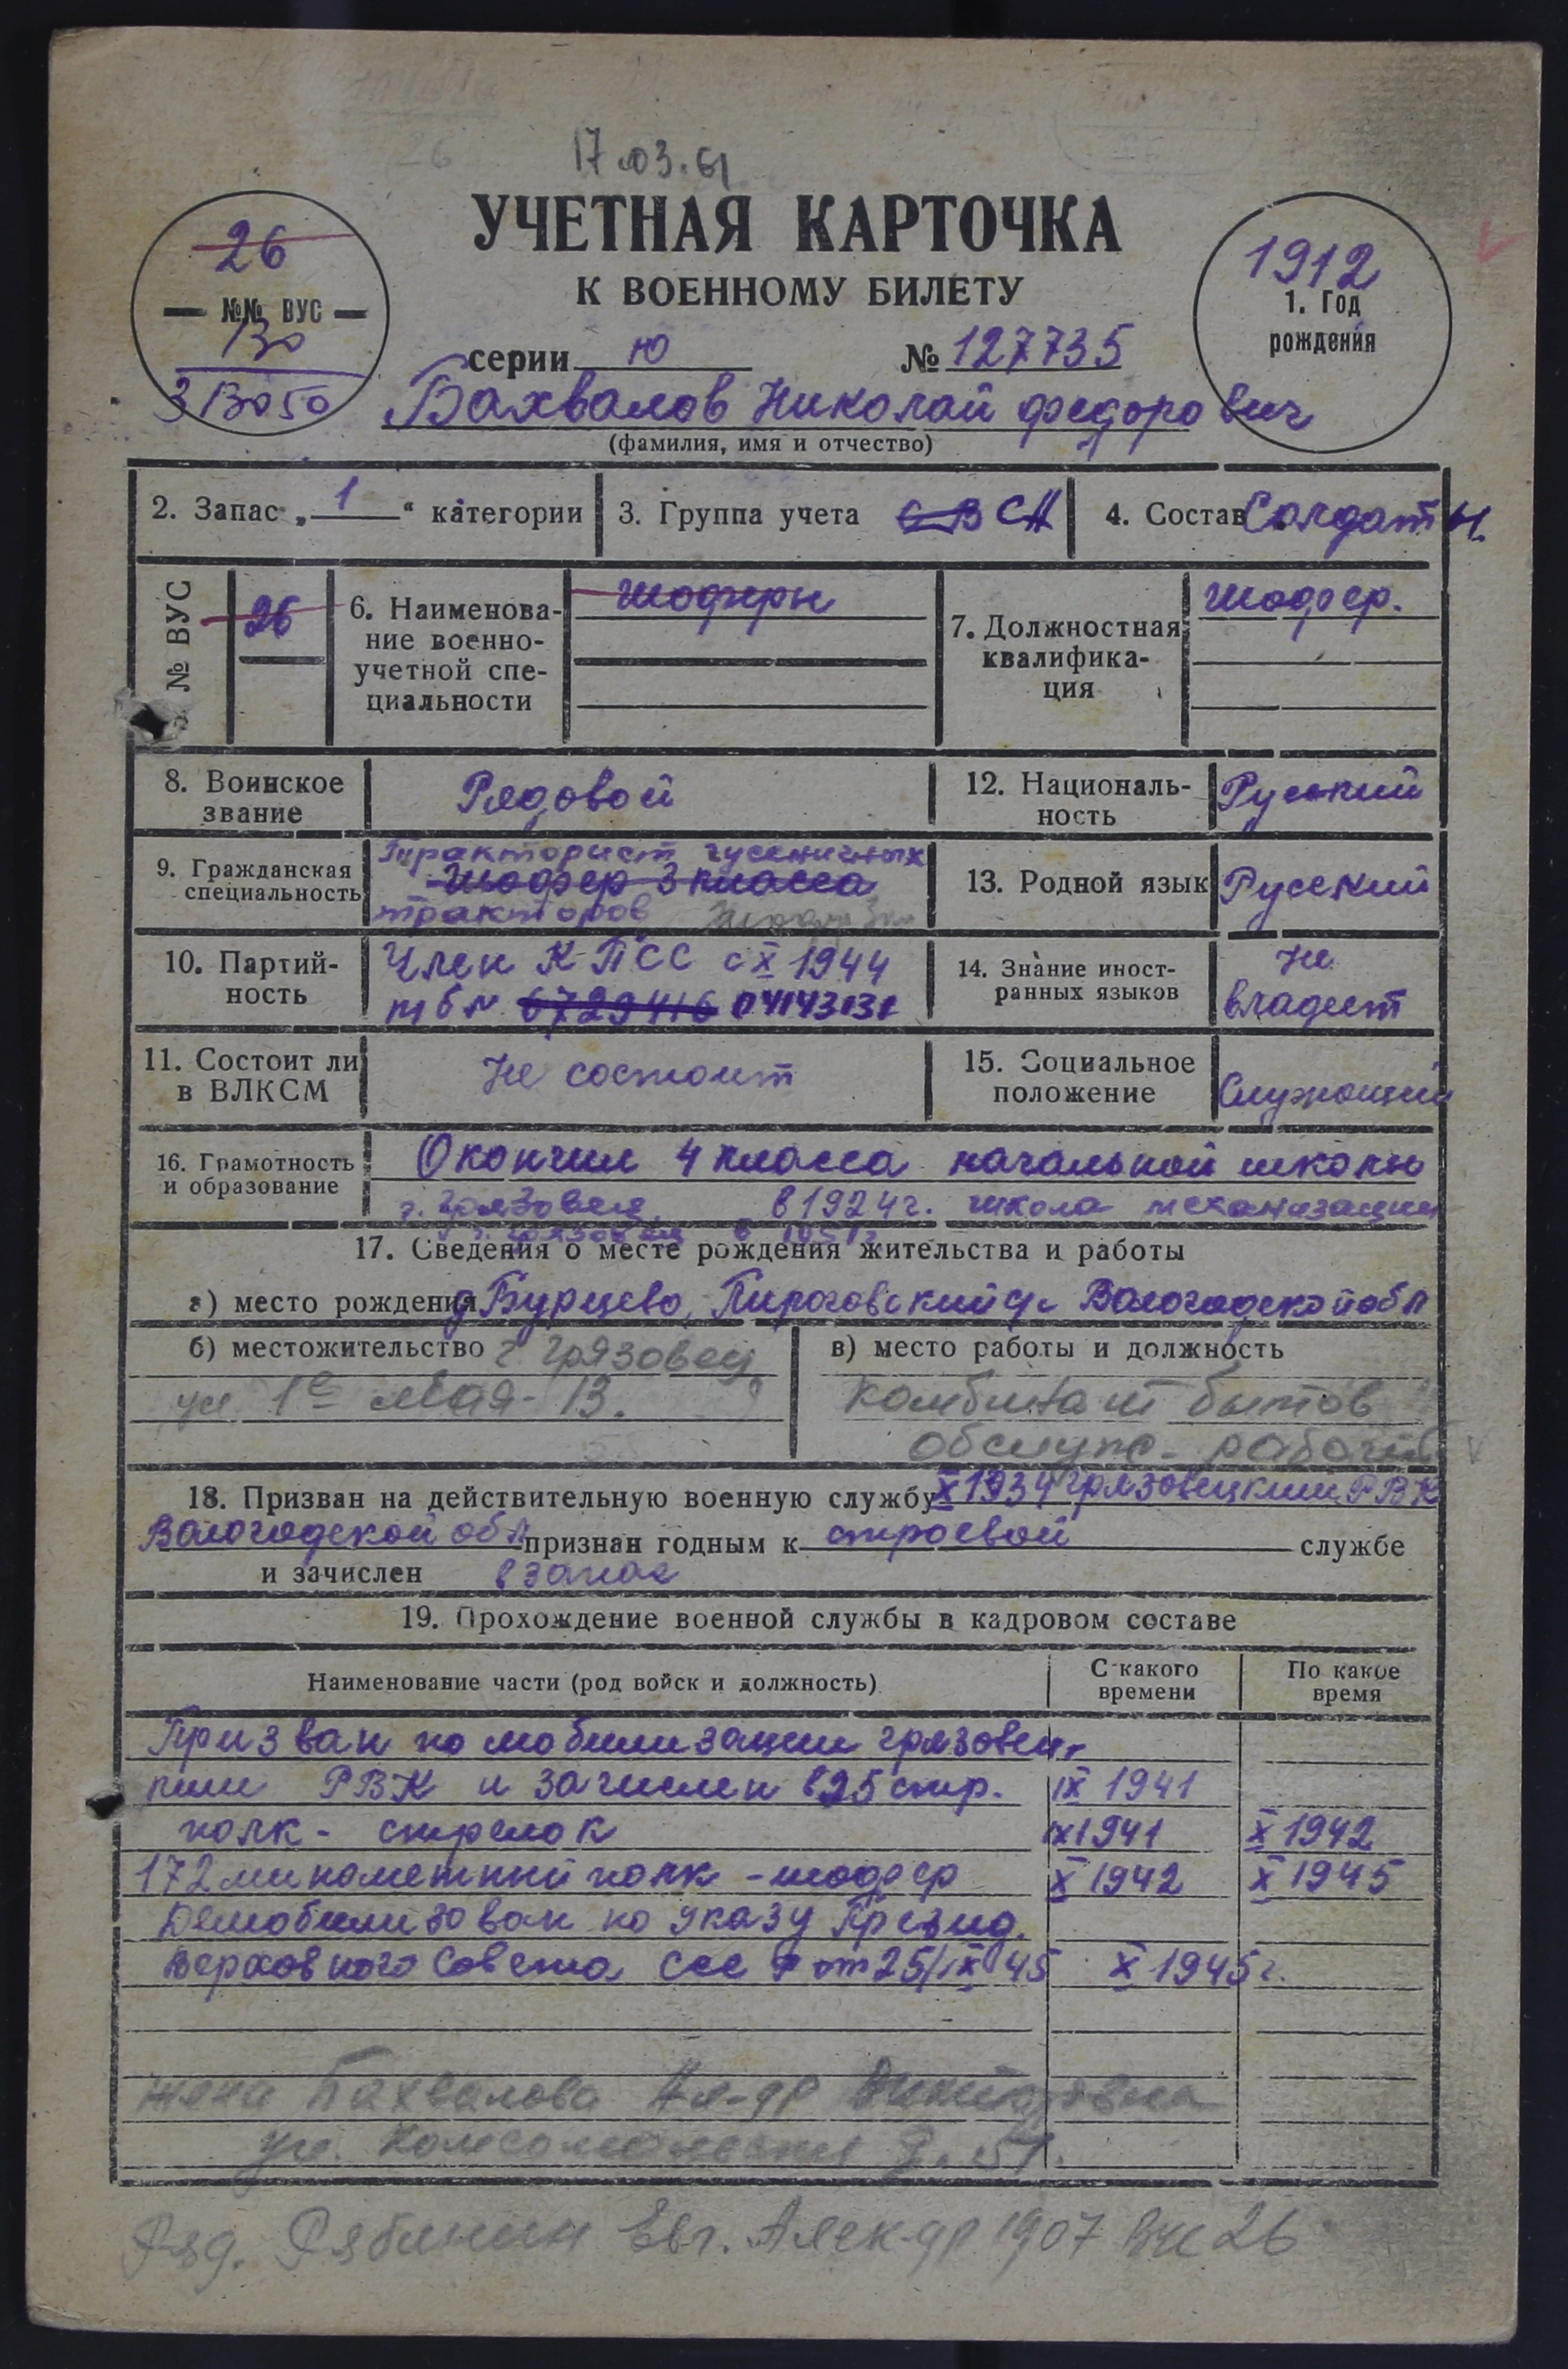 17.03.61
УЧЕТНАЯ КАРТОЧКА
К ВОЕННОМУ БИЛЕТУ
26
— №№ ВУС —
130
3 ВО 50
1912
1. Год
рождения
серии Ю № 127735
Бахвалов Николай Федорович
(фамилия, имя и отчество)
2. Запас „ 1 “ категории
3. Группа учета СВ СА
4. Состав Солдат
№ ВУС
26
6. Наименова-
ние военно-
учетной спе-
циальности
Шоферы
7. Должностная
квалифика-
ция
Шофер.
8. Воинское
звание
Рядовой
12. Националь-
ность
Русский
9. Гражданская
специальность
Тракторист гусеничных
Шофер 3 класса
тракторов
13. Родной язык
Русский
10. Партий-
ность
Член КПСС с X 1944
п/б № 6729416 04143131
14. Знание иност-
ранных языков
Не
владеет
11. Состоит ли
в ВЛКСМ
Не состоит
15. Социальное
положение
Служащий
16. Грамотность
и образование
Окончил 4 класса начальной школы
г. Грязовец в 1924 г. школа механизации
г. Грязовец в 1951 г
17. Сведения о месте рождения жительства и работы
а) место рождения д Бурцево, Вологодской обл
б) местожительство г Грязовец
ул. 1е Мая - 13.
в) место работы и должность
комбинат бытов
обслуж- рабочий
18. Призван на действительную военную службу X 1934 Грязовецким РВК
Вологодской обл признан годным к строевой службе
и зачислен в запас
19. Прохождение военной службы в кадровом составе
Наименование части (род войск и должность)
С какого
времени
По какое
время
Призван по мобилизации Грязовец-
ким РВК и зачислен в 25 стр. IX 1941
полк - стрелок IX 1941 X 1942
172 минометный полк - шофер X 1942 X 1945
Демобилизован по указу Презид.
Верховного Совета ССС Р от 25/IX 45 X 1945 г.
жена Бахвалова Ал-др Викторовна
ул. Комсомольская д. 51.
Ряд. Рябинин Евг. Алек-др 1907 26